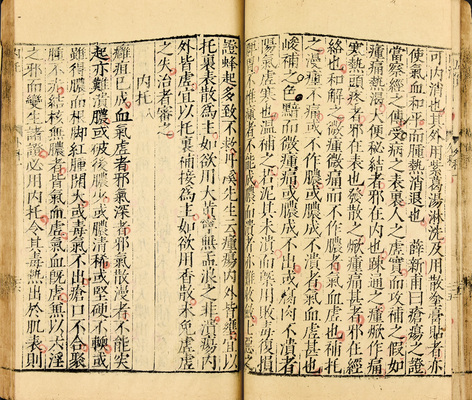 可內消也其外用紫葛湯淋洗及用散拳膏貼者亦
使氣血和平而腫熱消退也　薛新甫曰瘡瘍之證
當察經之傳受病之表裏人之虛實而攻補之假如
腫痛熱渴大便秘結者邪在內也疎通之腫焮作痛
寒熱頭疼者邪在表也發散之焮腫痛甚者邪在經
絡也和解之微腫微痛而不作膿者氣血虛也補托
之漫腫不痛或不作膿或膿成不潰者氣血虛甚也
峻補之色黯而微腫痛或膿成不出或腐肉不潰者
陽氣虛寒也溫補之若泥其未潰而槩用敗毒復損
不能成膿
證蜂起多致不救丹溪先生云癰瘍內外皆壅宜以
托裏表散為主如欲用大黃寧無孟浪之非潰瘍內
外皆虛宜以托裏補接為主如欲用香散未免虛虛
之失治者審之
內托八
癰疽已成血氣虛者邪氣深者邪氣散漫者不能突
起亦難潰膿或破後膿少或膿清稀或堅硬不軟或
雖得膿而根脚紅腫開大或毒氣不出瘡口不合聚
腫不赤結核無膿者皆氣血虛氣血既虛兼以六淫
之邪而變生諸證必用內托令其毒熱出於肌表則